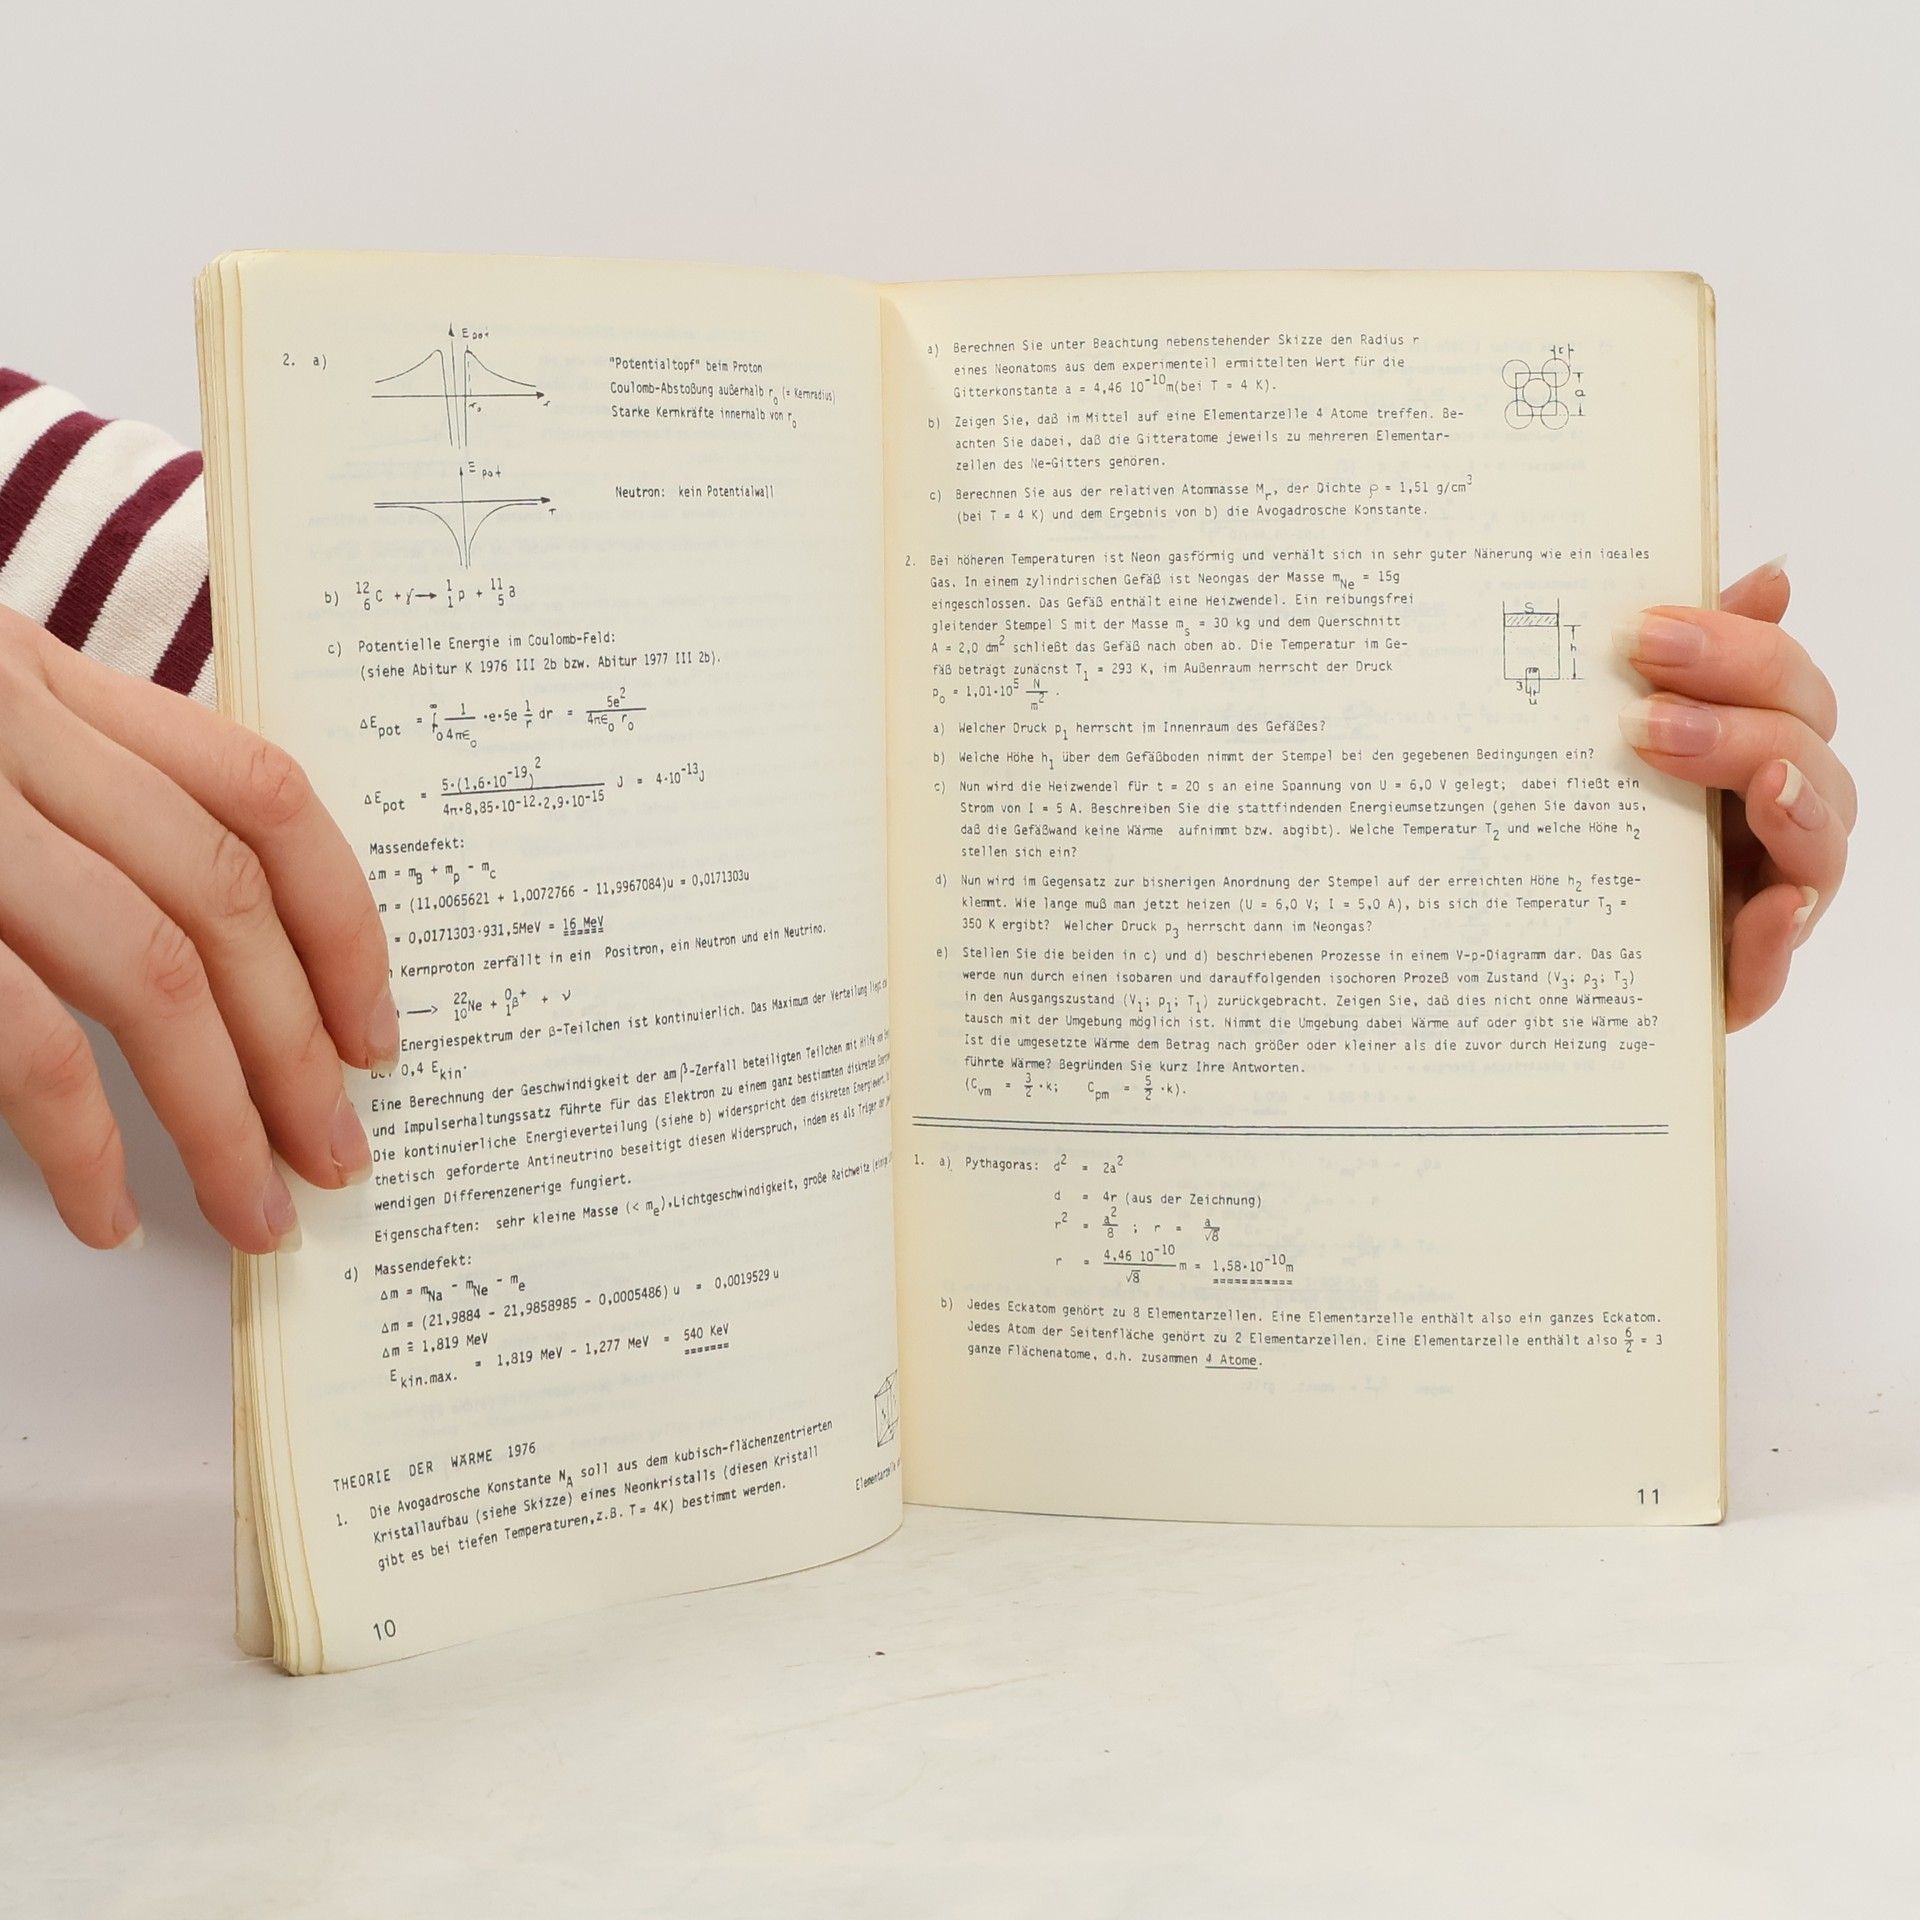 2. a)
E pot
r₀
r
"Potentialtopf" beim Proton
Coulomb-Abstoßung außerhalb r₀ (= Kernradius)
Starke Kernkräfte innerhalb von r₀
E pot
r
Neutron: kein Potentialwall
b) ¹²₆C + γ ⟶ ¹₁p + ¹¹₅B
c) Potentielle Energie im Coulomb-Feld:
(siehe Abitur K 1976 III 2b bzw. Abitur 1977 III 2b).
ΔE_pot = ∫_{r₀}^{∞} 1/(4πε₀) ·e·5e 1/r dr = 5e²/(4πε₀ r₀)
ΔE_pot = 5·(1,6·10⁻¹⁹)²/(4π·8,85·10⁻¹²·2,9·10⁻¹⁵) J = 4·10⁻¹³J
Massendefekt:
Δm = m_B + m_p - m_C
m = (11,0065621 + 1,0072766 - 11,9967084)u = 0,0171303u
= 0,0171303·931,5MeV = 16 MeV
Kernproton zerfällt in ein Positron, ein Neutron und ein Neutrino.
⟶ ²²₁₀Ne + ⁰₁β⁺ + ν
Energiespektrum der β-Teilchen ist kontinuierlich. Das Maximum der Verteilung liegt
0,4 E_kin.
Eine Berechnung der Geschwindigkeit der am β-Zerfall beteiligten Teilchen mit Hilfe von
und Impulserhaltungssatz führte für das Elektron zu einem ganz bestimmten diskreten
Die kontinuierliche Energieverteilung (siehe b) widerspricht dem diskreten Energiewert.
thetisch geforderte Antineutrino beseitigt diesen Widerspruch, indem es als Träger der
wendigen Differenzenerige fungiert.
Eigenschaften: sehr kleine Masse (< mₑ),Lichtgeschwindigkeit, große Reichweite
d) Massendefekt:
Δm = m_Na - m_Ne - m_e
Δm = (21,9884 - 21,9858985 - 0,0005486) u = 0,0019529 u
Δm ≙ 1,819 MeV
E_kin.max. = 1,819 MeV - 1,277 MeV = 540 KeV
THEORIE DER WÄRME 1976
1. Die Avogadrosche Konstante N_A soll aus dem kubisch-flächenzentrierten
Kristallaufbau (siehe Skizze) eines Neonkristalls (diesen Kristall
gibt es bei tiefen Temperaturen,z.B. T = 4K) bestimmt werden.
10
a) Berechnen Sie unter Beachtung nebenstehender Skizze den Radius r
eines Neonatoms aus dem experimentell ermittelten Wert für die
Gitterkonstante a = 4,46 10⁻¹⁰m(bei T = 4 K).
r
a
b) Zeigen Sie, daß im Mittel auf eine Elementarzelle 4 Atome treffen. Be-
achten Sie dabei, daß die Gitteratome jeweils zu mehreren Elementar-
zellen des Ne-Gitters gehören.
c) Berechnen Sie aus der relativen Atommasse M_r, der Dichte ρ = 1,51 g/cm³
(bei T = 4 K) und dem Ergebnis von b) die Avogadrosche Konstante.
2. Bei höheren Temperaturen ist Neon gasförmig und verhält sich in sehr guter Näherung wie ein ideales
Gas. In einem zylindrischen Gefäß ist Neongas der Masse m_Ne = 15g
eingeschlossen. Das Gefäß enthält eine Heizwendel. Ein reibungsfrei
gleitender Stempel S mit der Masse m_s = 30 kg und dem Querschnitt
A = 2,0 dm² schließt das Gefäß nach oben ab. Die Temperatur im Ge-
fäß beträgt zunächst T₁ = 293 K, im Außenraum herrscht der Druck
p₀ = 1,01·10⁵ N/m² .
S
h
U
a) Welcher Druck p₁ herrscht im Innenraum des Gefäßes?
b) Welche Höhe h₁ über dem Gefäßboden nimmt der Stempel bei den gegebenen Bedingungen ein?
c) Nun wird die Heizwendel für t = 20 s an eine Spannung von U = 6,0 V gelegt; dabei fließt ein
Strom von I = 5 A. Beschreiben Sie die stattfindenden Energieumsetzungen (gehen Sie davon aus,
daß die Gefäßwand keine Wärme aufnimmt bzw. abgibt). Welche Temperatur T₂ und welche Höhe h₂
stellen sich ein?
d) Nun wird im Gegensatz zur bisherigen Anordnung der Stempel auf der erreichten Höhe h₂ festge-
klemmt. Wie lange muß man jetzt heizen (U = 6,0 V; I = 5,0 A), bis sich die Temperatur T₃ =
350 K ergibt? Welcher Druck p₃ herrscht dann im Neongas?
e) Stellen Sie die beiden in c) und d) beschriebenen Prozesse in einem V-p-Diagramm dar. Das Gas
werde nun durch einen isobaren und darauffolgenden isochoren Prozeß vom Zustand (V₃; p₃; T₃)
in den Ausgangszustand (V₁; p₁; T₁) zurückgebracht. Zeigen Sie, daß dies nicht ohne Wärmeaus-
tausch mit der Umgebung möglich ist. Nimmt die Umgebung dabei Wärme auf oder gibt sie Wärme ab?
Ist die umgesetzte Wärme dem Betrag nach größer oder kleiner als die zuvor durch Heizung zuge-
führte Wärme? Begründen Sie kurz Ihre Antworten.
(C_vm = 3/2 ·k; C_pm = 5/2 ·k).
1. a) Pythagoras: d² = 2a²
d = 4r (aus der Zeichnung)
r² = a²/8 ; r = a/√8
r = 4,46 10⁻¹⁰/√8 m = 1,58·10⁻¹⁰m
b) Jedes Eckatom gehört zu 8 Elementarzellen. Eine Elementarzelle enthält also ein ganzes Eckatom.
Jedes Atom der Seitenfläche gehört zu 2 Elementarzellen. Eine Elementarzelle enthält also 6/2 = 3
ganze Flächenatome, d.h. zusammen 4 Atome.
11